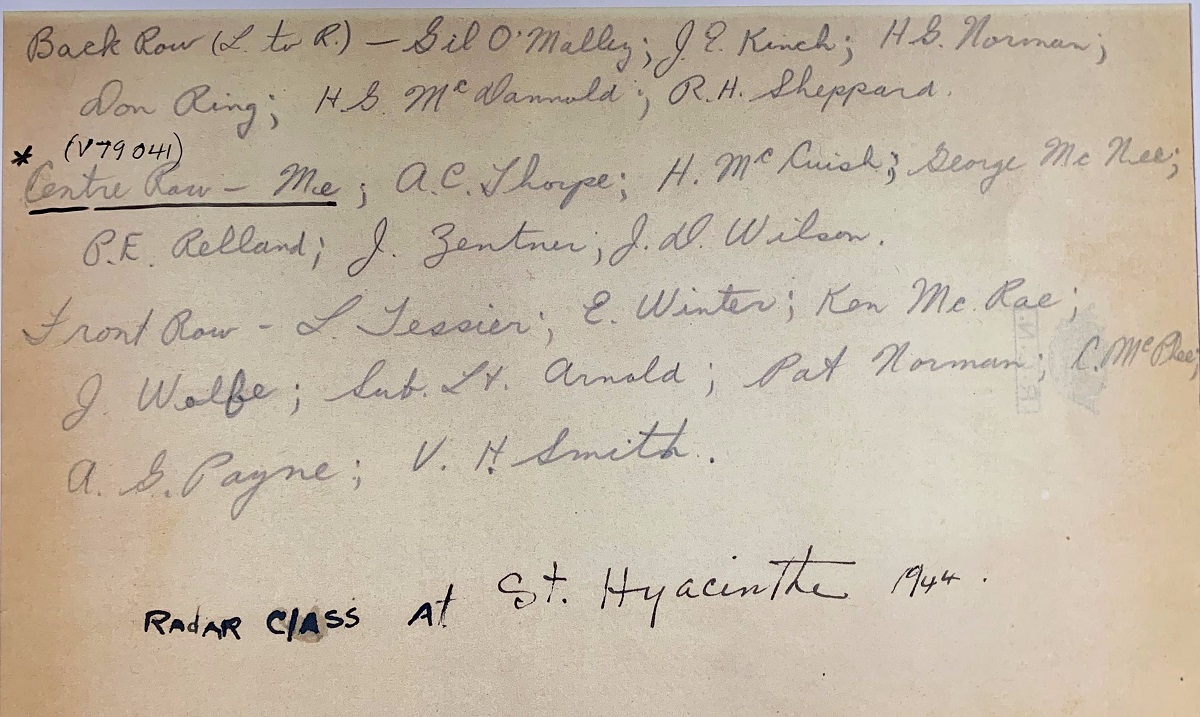 Back Row (L. to R.) — Gil O'Malley; J.E. Kinch; H.G. Norman;
Don Ring; H G McDannold; R.H. Sheppard.
* (V79041)
Centre Row — Me; A.C. Thorpe; H. McCuish; George McNee;
P.E. Relland; J. Zentner; J.D. Wilson.
Front Row - L Tessier; E. Winter; Ken McRae;
J. Wolfe; Sub. Lt. Arnold; Pat Norman; C. McPhee;
A. G. Payne; V. H. Smith.
RADAR ClASS At St. Hyacinthe 1944.